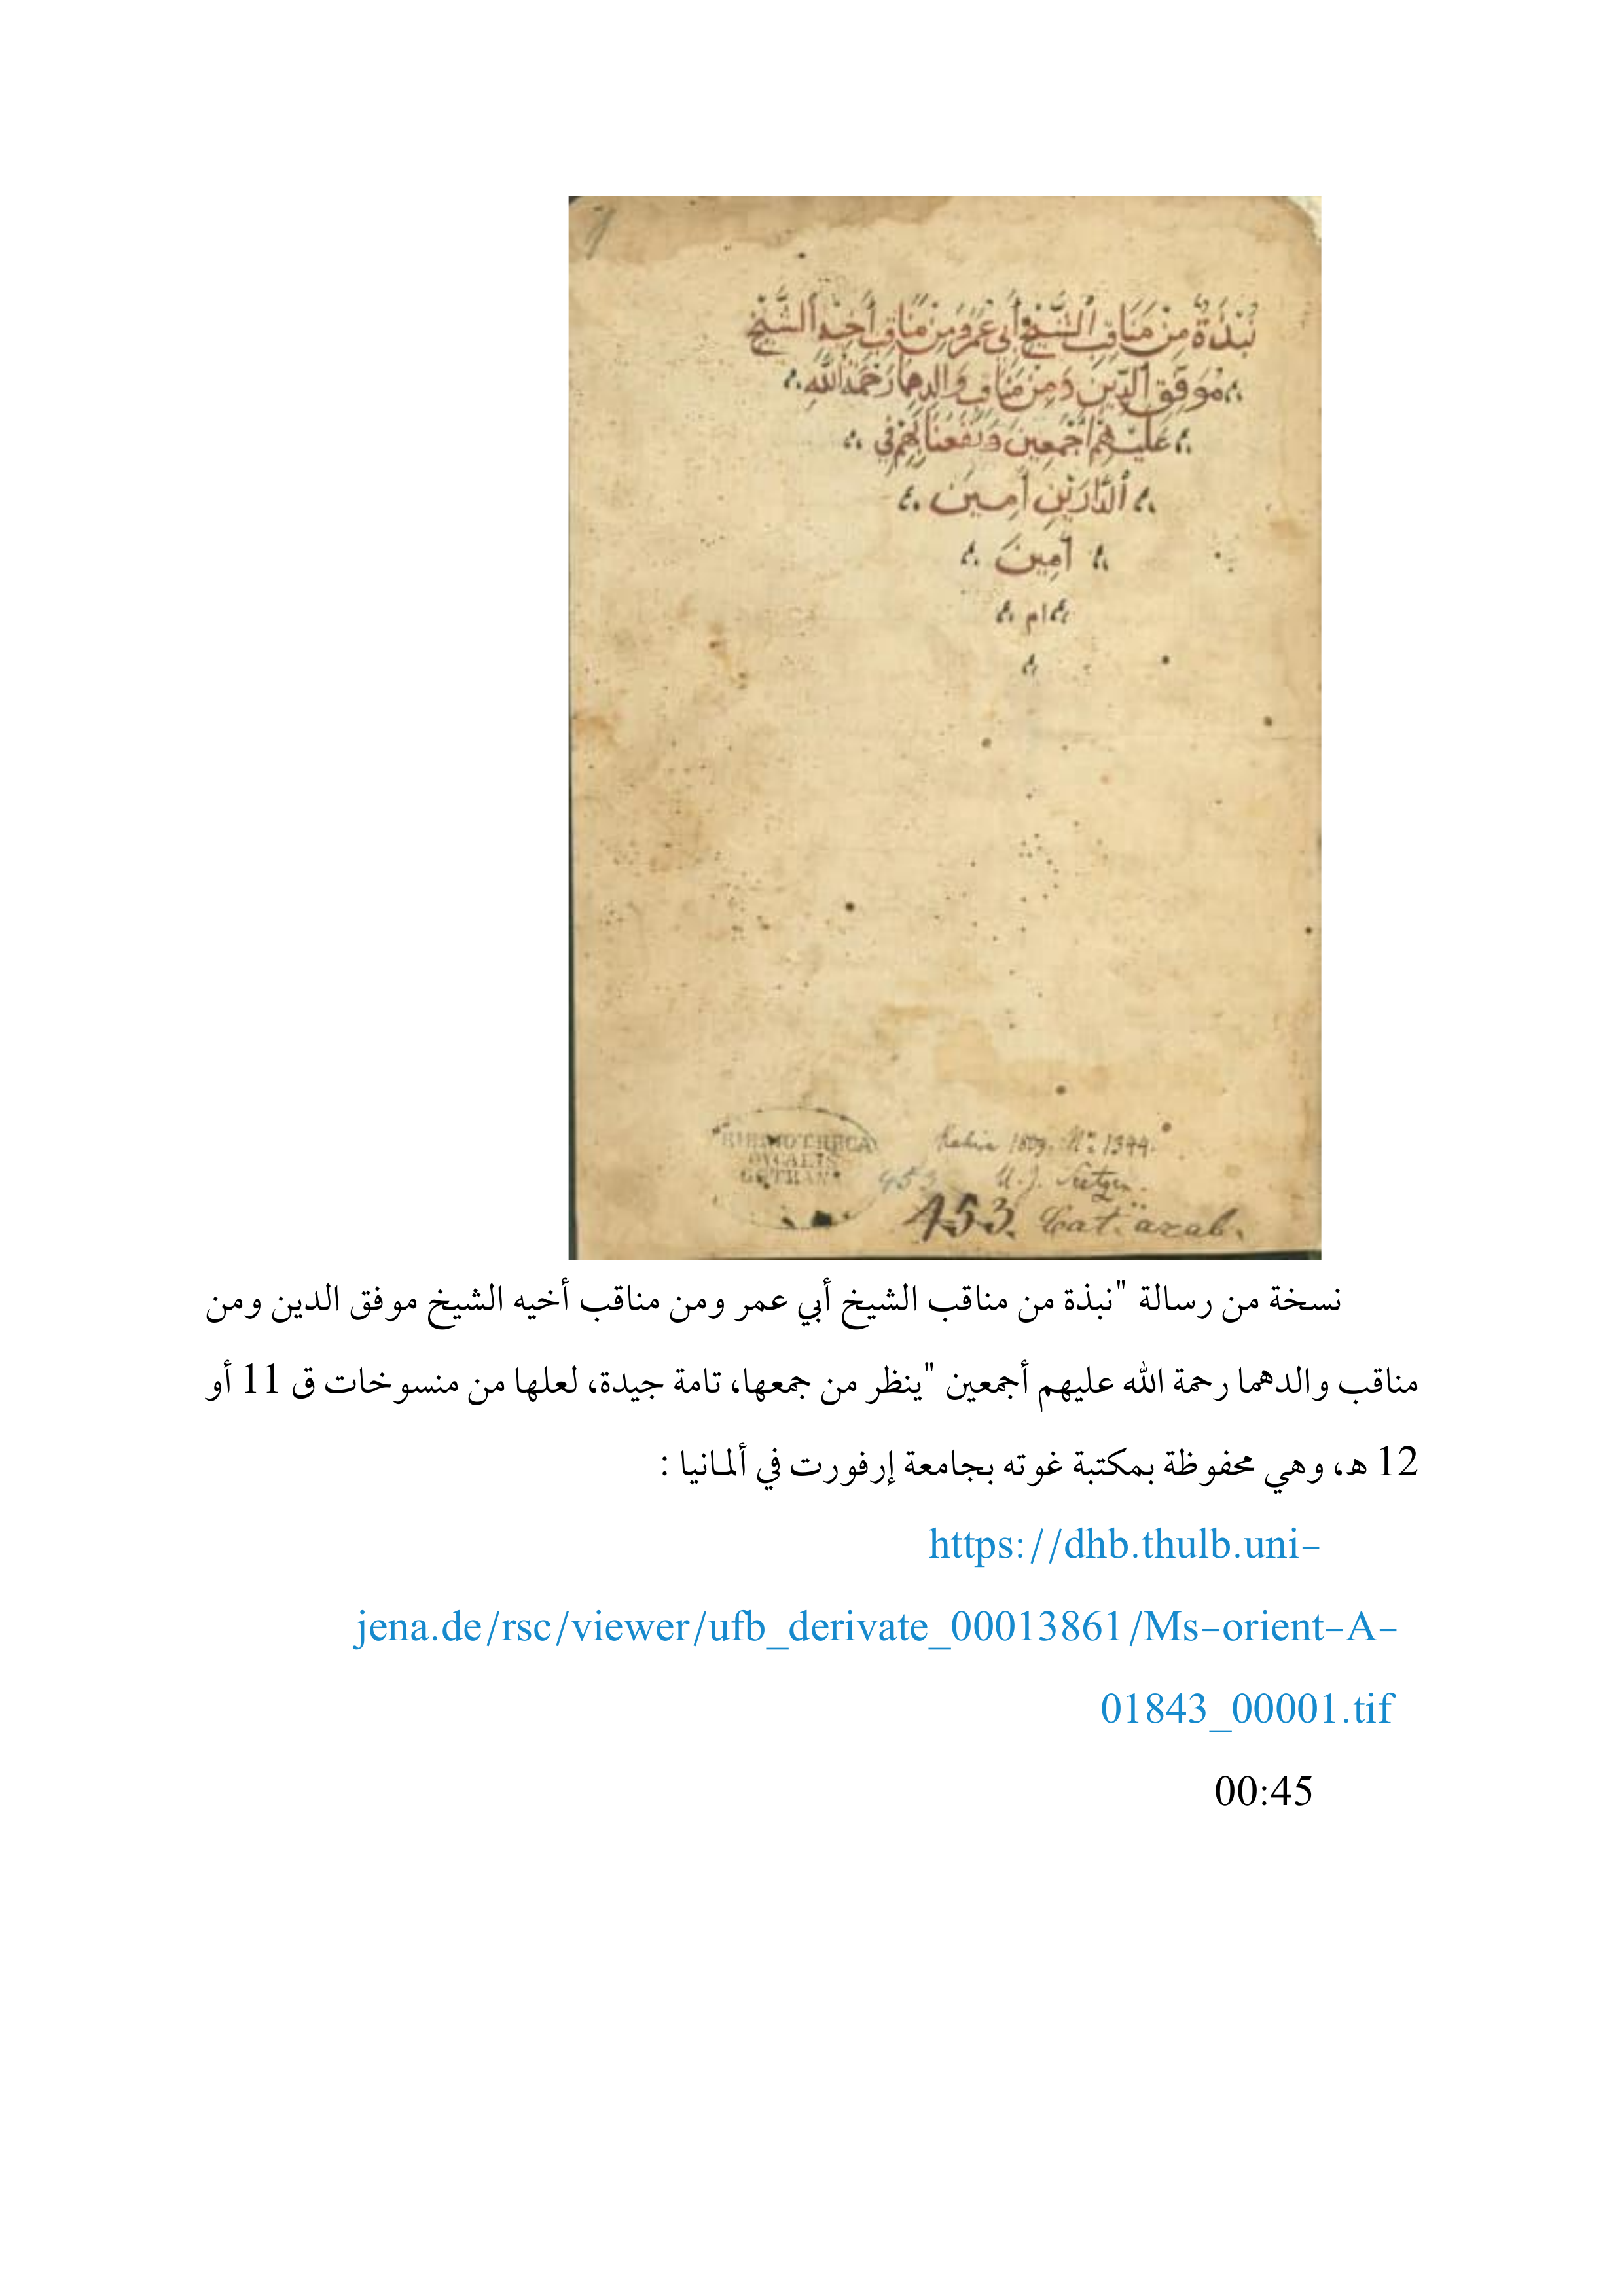 نُبْذَةٌ مِنْ مَنَاقِبِ الشَّيْخِ أَبِي عُمَرَ وَمِنْ مَنَاقِبِ أَخِيهِ الشَّيْخِ
مُوَفَّقِ الدِّينِ وَمِنْ مَنَاقِبِ وَالِدِهِمَا رَحْمَةُ اللَّهِ
عَلَيْهِمْ أَجْمَعِينَ وَنَفَعَنَا بِهِمْ فِي
الدَّارَيْنِ آمِينَ
آمِينَ
ام
BIBLIOTHECA
DVCALIS
GOTHANA
1809. Nº 1344.
453 U. J. Seetzen.
453. Cat. arab.
نسخة من رسالة "نبذة من مناقب الشيخ أبي عمر ومن مناقب أخيه الشيخ موفق الدين ومن
مناقب والدهما رحمة الله عليهم أجمعين "ينظر من جمعها، تامة جيدة، لعلها من منسوخات ق 11 أو
12 هـ، وهي محفوظة بمكتبة غوته بجامعة إرفورت في ألمانيا :
https://dhb.thulb.uni-
jena.de/rsc/viewer/ufb_derivate_00013861/Ms-orient-A-
01843_00001.tif
00:45